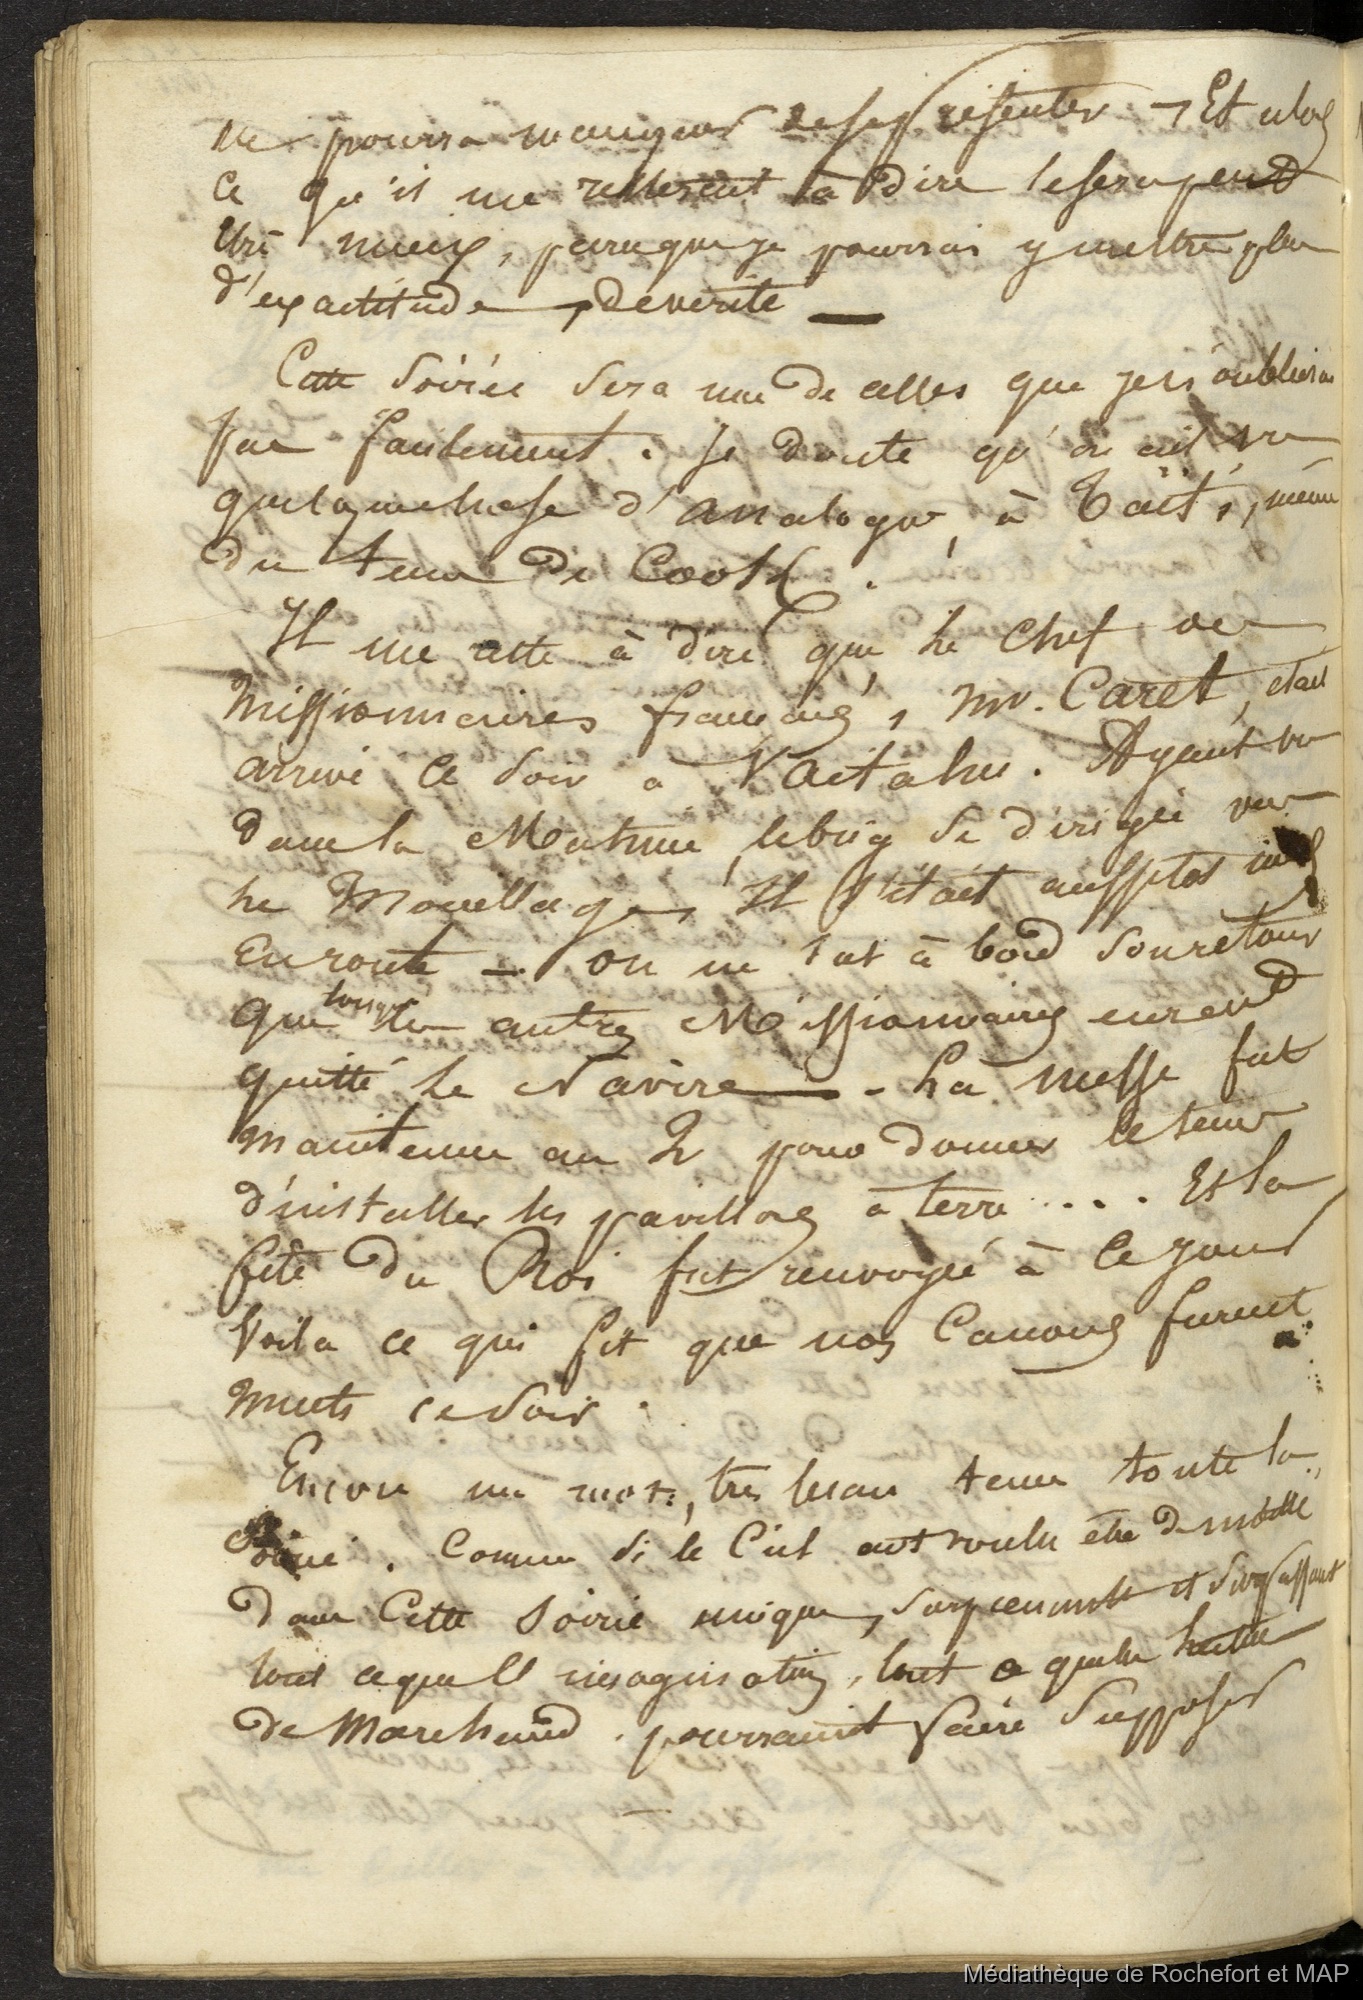 ne pourra manquer de se représenter, Et alors
ce qu'il me resterait à dire le sera peut
être mieux, parceque je pourrai y mettre plus
d'exactitude, de verité —
Cette soirée sera une de celles que je n'oublierai
pas facilement. Je doute qu'on ait vu
quelquechose d'analogue, à Taïti, même
du tems de Cook.
Il me reste à dire que le Chef des
Missionnaires français, Mr. Caret, était
arrivé ce soir à Vaitahu. Ayant vu
dans la Matinée, le brig se diriger vers
le Mouillage, Il s'était aussitot mis
en route — on ne sut à bord son retour
que lorsque les autres Missionnaires eurent
quitté le Navire —. La messe fut
maintenue au 2 pour donner le tems
d'installer les pavillons à terre .... Et la
fête du Roi fut renvoyée à ce jour
Voila ce qui fit que nos Canons furent
muets ce soir.
Encore un mot, très beau tems toute la
soirée. Comme si le Ciel eut voulu être de moitié
dans Cette soirée unique, surprenante et surpassant
tout ce que l'imagination, tout ce que la lecture
de Marchand pourraient faire supposer